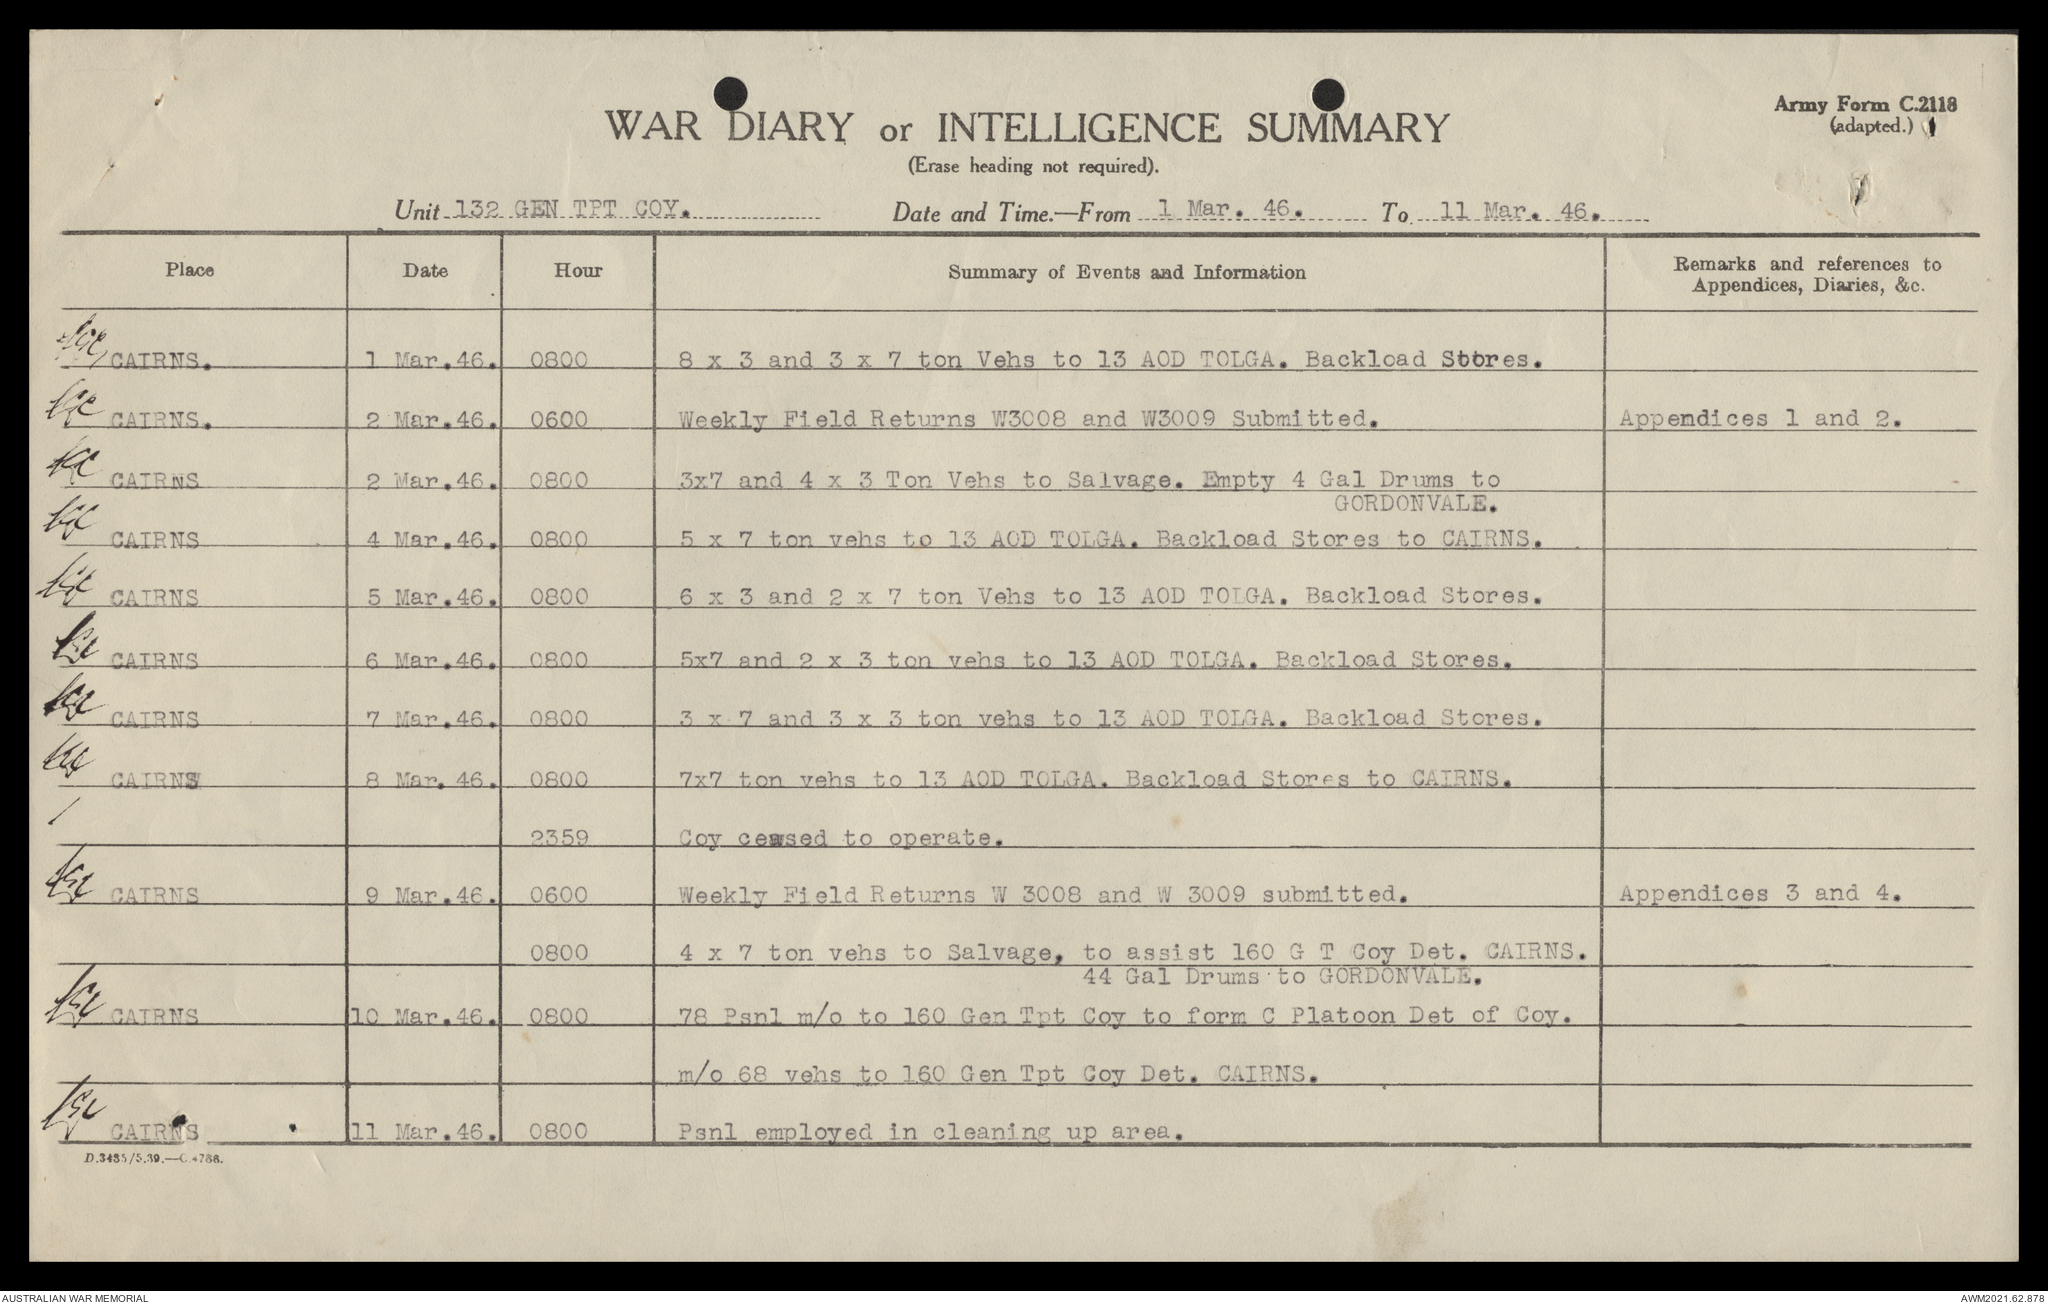 WAR DIARY or INTELLIGENCE SUMMARY
Army Form C.2118
(adapted.) 1
(Erase heading not required).
Unit 132 GEN TPT COY. Date and Time.—From 1 Mar. 46. To 11 Mar. 46.
Place Date Hour Summary of Events and Information Remarks and references to
Appendices, Diaries, &c.
CAIRNS. 1 Mar.46. 0800 8 x 3 and 3 x 7 ton Vehs to 13 AOD TOLGA. Backload Stores.
CAIRNS. 2 Mar.46. 0600 Weekly Field Returns W3008 and W3009 Submitted. Appendices 1 and 2.
CAIRNS 2 Mar.46. 0800 3x7 and 4 x 3 Ton Vehs to Salvage. Empty 4 Gal Drums to
GORDONVALE.
CAIRNS 4 Mar.46. 0800 5 x 7 ton vehs to 13 AOD TOLGA. Backload Stores to CAIRNS.
CAIRNS 5 Mar.46. 0800 6 x 3 and 2 x 7 ton Vehs to 13 AOD TOLGA. Backload Stores.
CAIRNS 6 Mar.46. 0800 5x7 and 2 x 3 ton vehs to 13 AOD TOLGA. Backload Stores.
CAIRNS 7 Mar.46. 0800 3 x 7 and 3 x 3 ton vehs to 13 AOD TOLGA. Backload Stores.
CAIRNS 8 Mar. 46. 0800 7x7 ton vehs to 13 AOD TOLGA. Backload Stores to CAIRNS.
2359 Coy ceased to operate.
CAIRNS 9 Mar.46. 0600 Weekly Field Returns W 3008 and W 3009 submitted. Appendices 3 and 4.
0800 4 x 7 ton vehs to Salvage, to assist 160 G T Coy Det. CAIRNS.
44 Gal Drums to GORDONVALE.
CAIRNS 10 Mar.46. 0800 78 Psnl m/o to 160 Gen Tpt Coy to form C Platoon Det of Coy.
m/o 68 vehs to 160 Gen Tpt Coy Det. CAIRNS.
CAIRNS 11 Mar.46. 0800 Psnl employed in cleaning up area.
D.3485/5.39.—C.4786.
AUSTRALIAN WAR MEMORIAL AWM2021.62.878